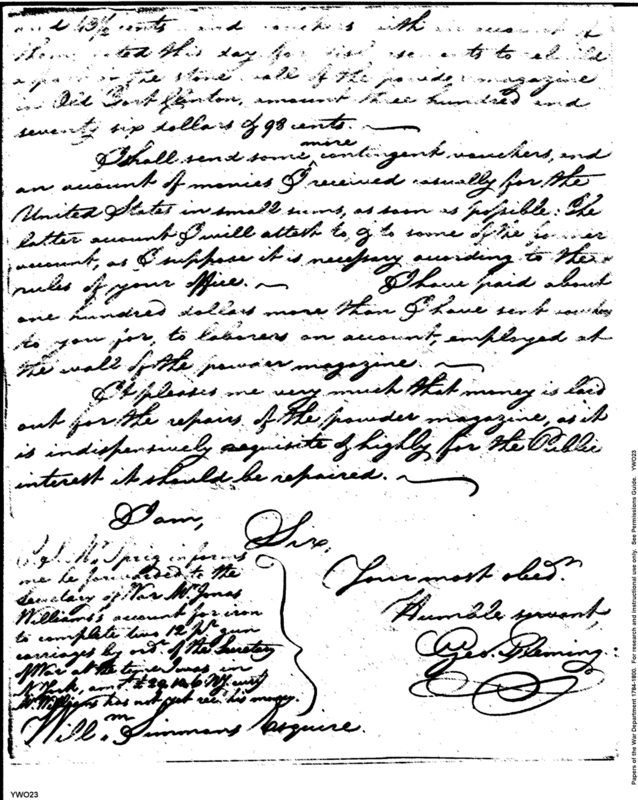 and 43½ cents and vouchers with an account of
them dated this day for disbursements to rebuild
a part in the stone wall of the powder magazine
in Old Fort Clinton, amount three hundred and
seventy six dollars & 98 cents.
I shall send some more contingent vouchers, and
an account of monies I received casually for the
United States in small sums, as soon as possible: The
latter account I will attest to, & to some of the former
account, as I suppose it is necessary according to the
rules of your office. I have paid about
one hundred dollars more than I have sent vouchers
to you for, to laborers on account, employed at
the wall of the powder magazine.
It pleases me very much that money is laid
out for the repairs of the powder magazine, as it
is indispensively requisite & highly for the Public
interest it should be repaired.
I am,
Sir,
Your most obedt.
Humble servant,
Geo. Fleming.
P.S. Mr. Sprig informs
me he forwarded to the
Secretary of War Mr. Jonas
Williams's account for iron
to complete two 12 pr. gun
carriages by ordr. of the Secretary
of War at the time I was in
N. York, amt. £ N.Y. curry.
Mr. Williams has not yet recd. his money.
Willm. Simmons Esquire.
Papers of the War Department 1784-1800. For research and instructional use only. See Permissions Guide. YWO23
YWO23